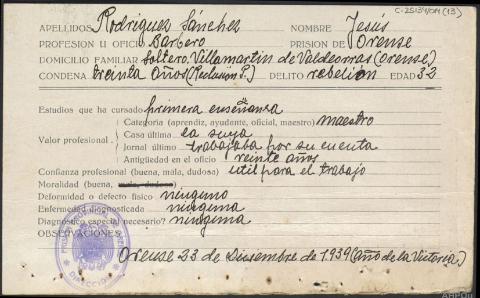 C-25134/014 (13)
APELLIDOS Rodriguez Sánchez NOMBRE Jesús
PROFESION U OFICIO Barbero PRISION DE Orense
DOMICILIO FAMILIAR soltero, Villamartin de Valdeorras (Orense)
CONDENA treinta años (Reclusión P.) DELITO rebelión EDAD 32
Estudios que ha cursado primera enseñanza
Categoría (aprendiz, ayudante, oficial, maestro) maestro
Valor profesional. Casa última la suya
Jornal último trabajaba por su cuenta
Antigüedad en el oficio veinte años
Confianza profesional (buena, mala, dudosa) util para el trabajo
Moralidad (buena, mala, dudosa)
Deformidad o defecto físico ninguno
Enfermedad diagnosticada ninguna
Diagnóstico especial necesario? ninguna
OBSERVACIONES
PRISION PROVINCIAL DE ORENSE
DIRECCION
Orense 23 de Diciembre de 1.939 (año de la Victoria.)
AHPOu